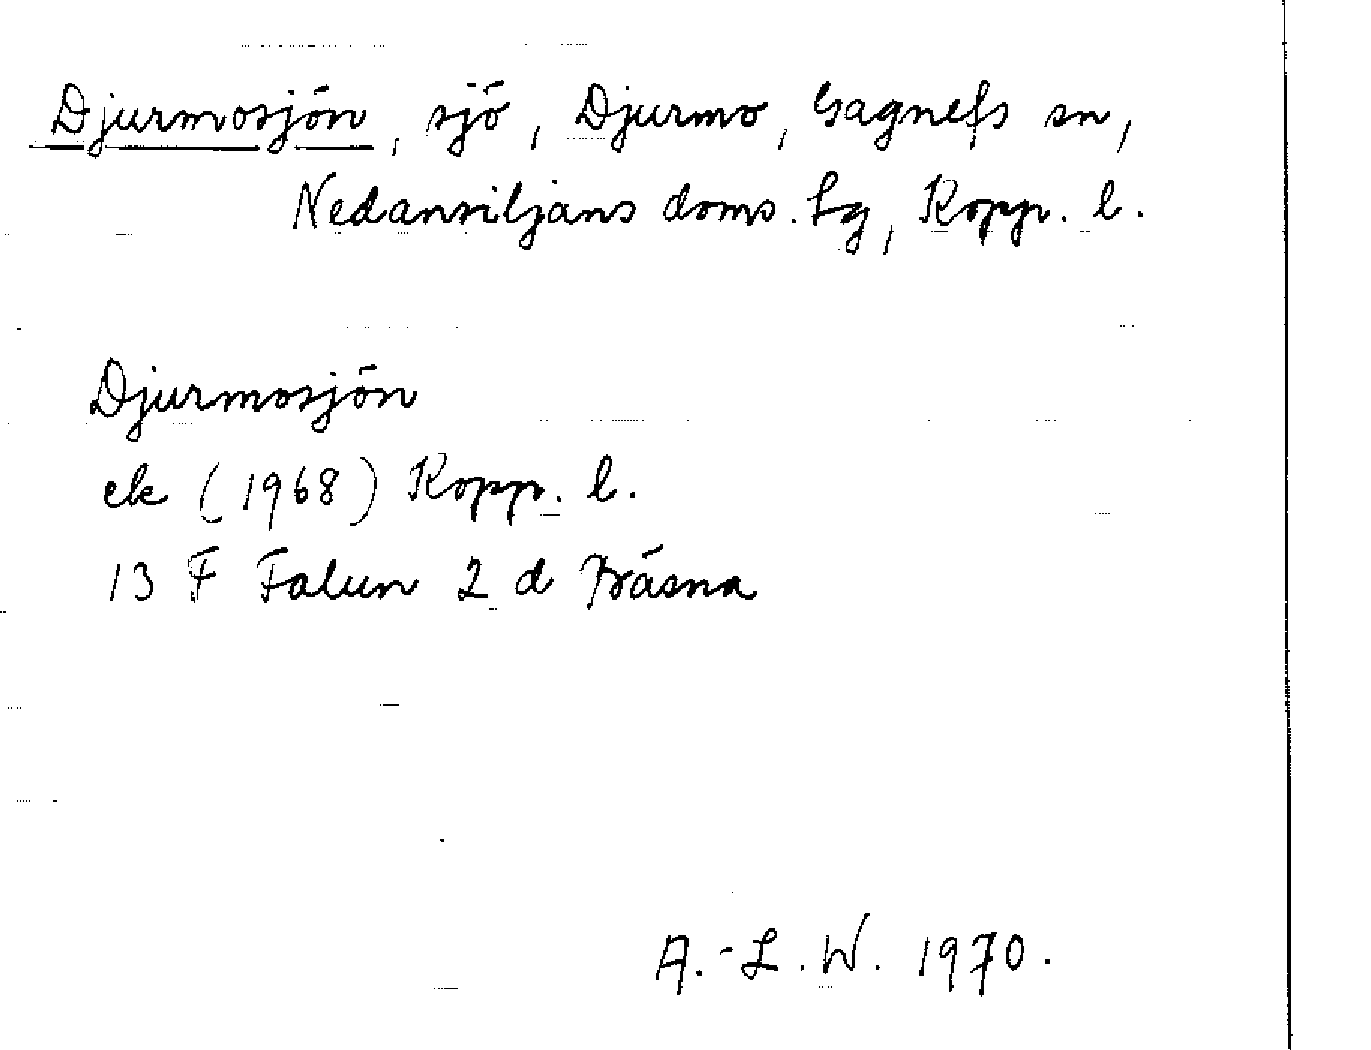 Djurmosjön, sjö, Djurmo, Gagnefs sn,
Nedansiljans doms. tg, Kopp. l.
Djurmosjön
ek (1968) Kopp. l.
13 F Falun 2 d Bråsna
A.-L.W. 1970.